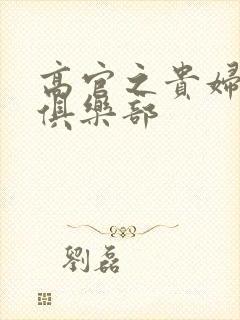 高官之貴婦
俱樂部
劉磊